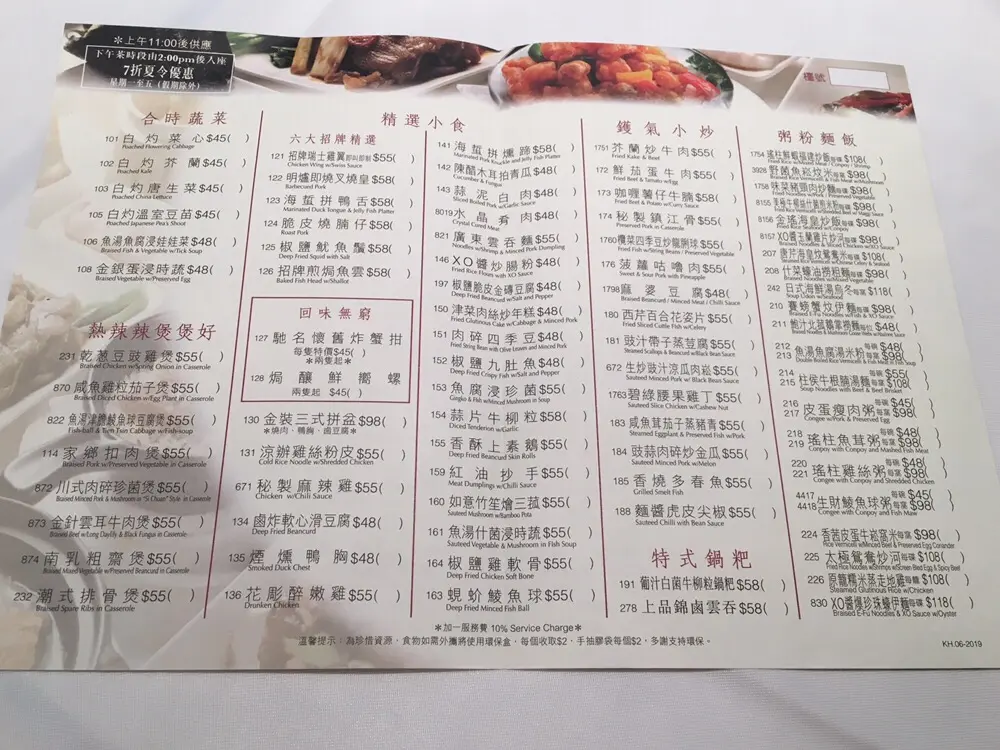 ＊上午11:00後供應
下午茶時段由2:00pm後入座
7折夏令優惠
星期一至五（假期除外）
檯號
合時蔬菜
101 白灼菜心$45( )
Poached Flowering Cabbage
102 白灼芥蘭$45( )
Poached Kale
103 白灼唐生菜$45( )
Poached China Lettuce
105 白灼溫室豆苗$45( )
Poached Japanese Pea's Shoot
106 魚湯魚腐浸娃娃菜$48( )
Braised Fish & Vegetable w/Tick Soup
108 金銀蛋浸時蔬$48( )
Braised Vegetable w/Preserved Egg
熱辣辣煲煲好
231 乾葱豆豉雞煲$55( )
Braised Chicken w/Spring Onion in Casserole
870 咸魚雞粒茄子煲$55( )
Braised Diced Chicken w/Egg Plant in Casserole
822 魚湯津膽鯪魚球豆腐煲$55( )
Fish-ball & Tien Tsin Cabbage w/Fish-soup
114 家鄉扣肉煲$55( )
Braised Pork w/Preserved Vegetable in Casserole
872 川式肉碎珍菌煲$55( )
Braised Minced Pork & Mushroom in "Si Chuan" Style in Casserole
873 金針雲耳牛肉煲$55( )
Braised Beef w/Long Daylily & Black Fungus in Casserole
874 南乳粗齋煲$55( )
Braised Mixed Vegetable w/Preserved Beancurd in Casserole
232 潮式排骨煲$55( )
Braised Spare Ribs in Casserole
精選小食
六大招牌精選
121 招牌瑞士雞翼即叫即制$55( )
Chicken Wing w/Swiss Sauce
122 明爐即燒叉燒皇$58( )
Barbecued Pork
123 海蜇拼鴨舌$58( )
Marinated Duck Tongue & Jelly Fish Platter
124 脆皮燒腩仔$58( )
Roast Pork
125 椒鹽魷魚鬚$58( )
Deep Fried Squid w/Salt
126 招牌煎焗魚雲$58( )
Baked Fish Head w/Shallot
回味無窮
127 馳名懷舊炸蟹拑
每隻特價$45( )
＊兩隻起＊
128 焗釀鮮嚮螺
兩隻起 $45( )
130 金裝三式拼盆$98( )
＊燒肉、鴨胸、鹵豆腐＊
131 涼辦雞絲粉皮$55( )
Cold Rice Noodle w/Shredded Chicken
671 秘製麻辣雞$55( )
Chicken w/Chili Sauce
134 鹵炸軟心滑豆腐$48( )
Deep Fried Beancurd
135 煙燻鴨胸$48( )
Smoked Duck Chest
136 花彫醉嫩雞$55( )
Drunken Chicken
141 海蜇拼燻蹄$58( )
Marinated Pork Knuckle and Jelly Fish Platter
142 陳醋木耳拍青瓜$48( )
Cucumber & Fungus
143 蒜泥白肉$48( )
Sliced Boiled Pork w/Garlic Sauce
8019 水晶肴肉$48( )
Crystal Cured Meat
821 廣東雲吞麵$55( )
Noodles w/Shrimp & Minced Pork Dumpling
146 XO醬炒腸粉$48( )
Fried Rice Flours with XO Sauce
197 椒鹽脆皮金磚豆腐$48( )
Deep Fried Beancurd w/Salt and Pepper
150 津菜肉絲炒年糕$48( )
Fried Glutinous Cake w/Cabbage & Minced Pork
151 肉碎四季豆$48( )
Fried String Bean with Olive Leaven and Minced Pork
152 椒鹽九肚魚$48( )
Deep Fried Crispy Fish w/Salt and Pepper
153 魚腐浸珍菌$55( )
Gingko & Fish w/Minced Mushroom in Soup
154 蒜片牛柳粒$58( )
Diced Tenderion w/Garlic
155 香酥上素鵝$55( )
Deep Fried Beancurd Skin Rolls
159 紅油抄手$55( )
Meat Dumplings w/Chilli Sauce
160 如意竹笙燴三菰$55( )
Sauteed Mushroom w/Bamboo Pota
161 魚湯什菌浸時蔬$55( )
Sauteed Vegetable & Mushroom in Fish Soup
164 椒鹽雞軟骨$55( )
Deep Fried Chicken Soft Bone
163 蜆蚧鯪魚球$55( )
Deep Fried Minced Fish Ball
鑊氣小炒
1751 芥蘭炒牛肉$55( )
Fried Kake & Beef
172 鮮茄蛋牛肉$55( )
Fried Beef & Tomato w/Egg
173 咖喱薯仔牛腩$55( )
Fried Beef & Potato w/Curry Sauce
174 秘製鎮江骨$55( )
Preserved Pork in Casserole
1760 欖菜四季豆炒龍脷球$55( )
Fried Fish w/String Beans / Preserved Vegetable
176 菠蘿咕嚕肉$55( )
Sweet & Sour Pork with Pineapple
1798 麻婆豆腐$48( )
Braised Beancurd / Minced Meat / Chilli Sauce
180 西芹百合花姿片$55( )
Fried Sliced Cuttle Fish w/Celery
181 豉汁帶子蒸荳腐$55( )
Steamed Scallops & Beancurd w/Black Bean Sauce
672 生炒豉汁涼瓜肉崧$55( )
Sauteed Minced Pork w/ Black Beaus Sauce
1763 碧綠腰果雞丁$55( )
Sauteed Slice Chicken w/Cashew Nut
183 咸魚茸茄子蒸豬青$55( )
Steamed Eggplant & Preserved Fish w/Pork
184 豉蒜肉碎炒金瓜$55( )
Sauteed Minced Pork w/Melon
185 香燒多春魚$55( )
Grilled Smelt Fish
188 麵醬虎皮尖椒$55( )
Sauteed Chilli with Bean Sauce
特式鍋粑
191 葡汁白菌牛柳粒鍋粑$58( )
278 上品錦鹵雲吞$58( )
粥粉麵飯
1754 瑤柱鮮蝦福建炒飯每碟$108( )
3928 野菌魚崧炆米每窩$98( )
1758 味菜豬頸肉炒麵每碟$98( )
8155
8156 金瑤海皇炒飯每碟$98( )
8157 XO醬玉蘭雞片炒河每碟$98( )
207 唐芹海皇炆鴛鴦米每碟$98( )
208 什菜蠔油撈粗麵每碟$98( )
242 日式海鮮湯烏冬每窩$118( )
Soup Udon w/Seafood
210 賽螃蟹炆伊麵每碟$98( )
Braised E-Fu Noodles w/Fish & XO Sauce
211 鮑汁北菰鵝掌撈麵每位$55( )
212 每碗$48( )
213 魚湯魚腐湯米粉每窩$98( )
214 $55( )
215 柱侯牛根腩湯麵每窩$108( )
Soup Noodles w/Beef & Beef Brisket
216 每碗$45( )
217 皮蛋瘦肉粥每窩$98( )
Congee w/Pork & Preserved Egg
218 每碗$48( )
219 瑤柱魚茸粥每窩$98( )
Congee with Conpoy and Mashed Fish Meat
220 每碗$48( )
221 瑤柱雞絲粥每窩$98( )
Congee with Conpoy and Shredded Chicken
4417 每碗$45( )
4418 生財鯪魚球粥每窩$98( )
Congee with Conpoy and Fish Maw
224 香茜皮蛋牛崧窩米每窩$98( )
Rice Vermicelli w/Minced Beef & Preserved Egg Coriander
225 太極鴛鴦炒河每碟$108( )
226 原籠糯米蒸走地雞每籠$108( )
Steamed Glutinous Rice w/Chicken
830 XO醬爆珍珠蠔伊麵每碟$118( )
Braised E-Fu Noodles & XO Sauce w/Oyster
＊加一服務費 10% Service Charge＊
溫馨提示：為珍惜資源，食物如需外攜將使用環保盒，每個收取$2，手抽膠袋每個$2，多謝支持環保。
KH.06-2019